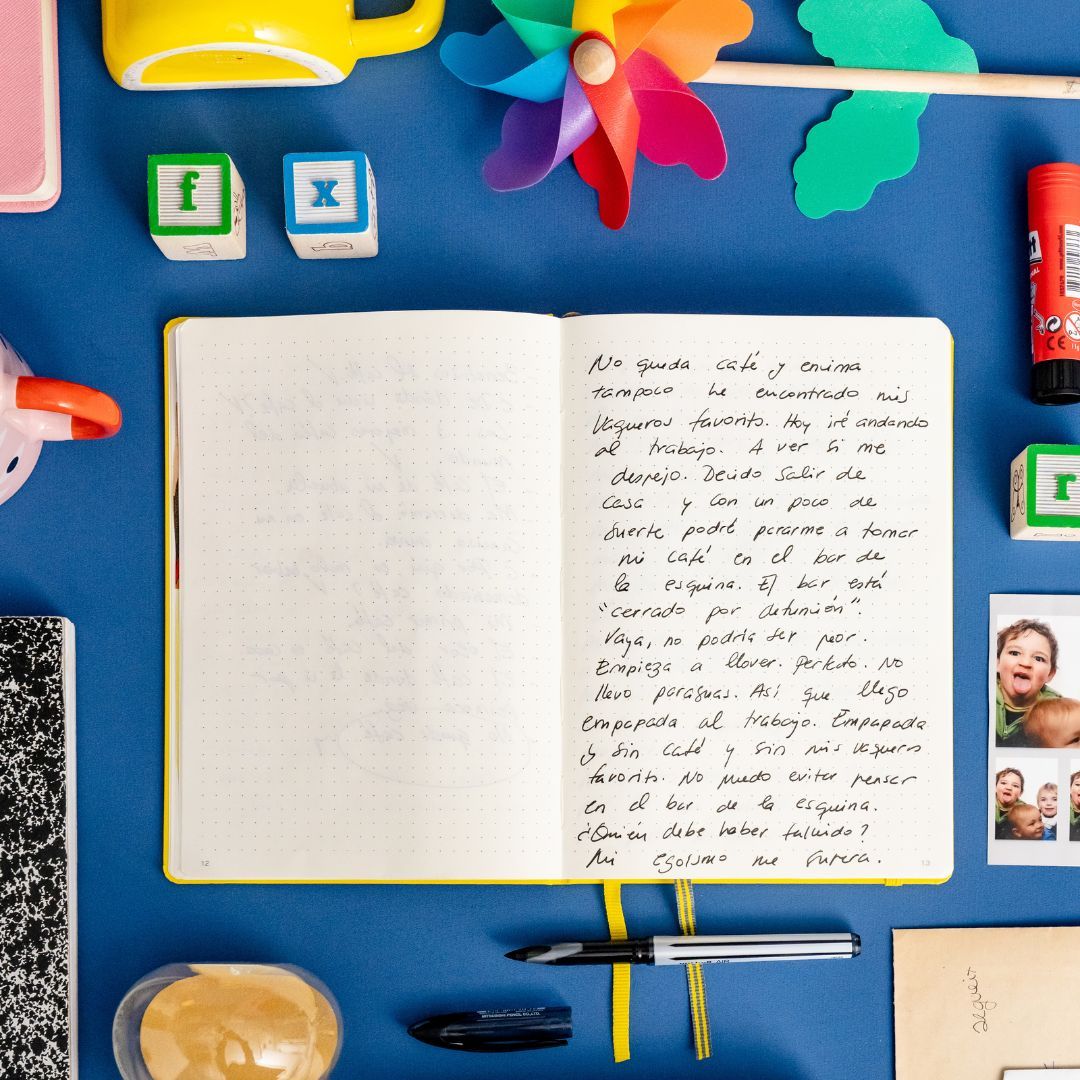 f
x
No queda café y encima
tampoco he encontrado mis
vaqueros favoritos. Hoy iré andando
al trabajo. A ver si me
despejo. Decido salir de
casa y con un poco de
suerte podré pararme a tomar
mi café en el bar de
la esquina. El bar está
"cerrado por defunción".
Vaya, no podría ser peor.
Empieza a llover. Perfecto. No
llevo paraguas. Así que llego
empapada al trabajo. Empapada
y sin café y sin mis vaqueros
favoritos. No puedo evitar pensar
en el bar de la esquina.
¿Quién debe haber fallecido?
Mi egoísmo me supera.
12
13
r
CE